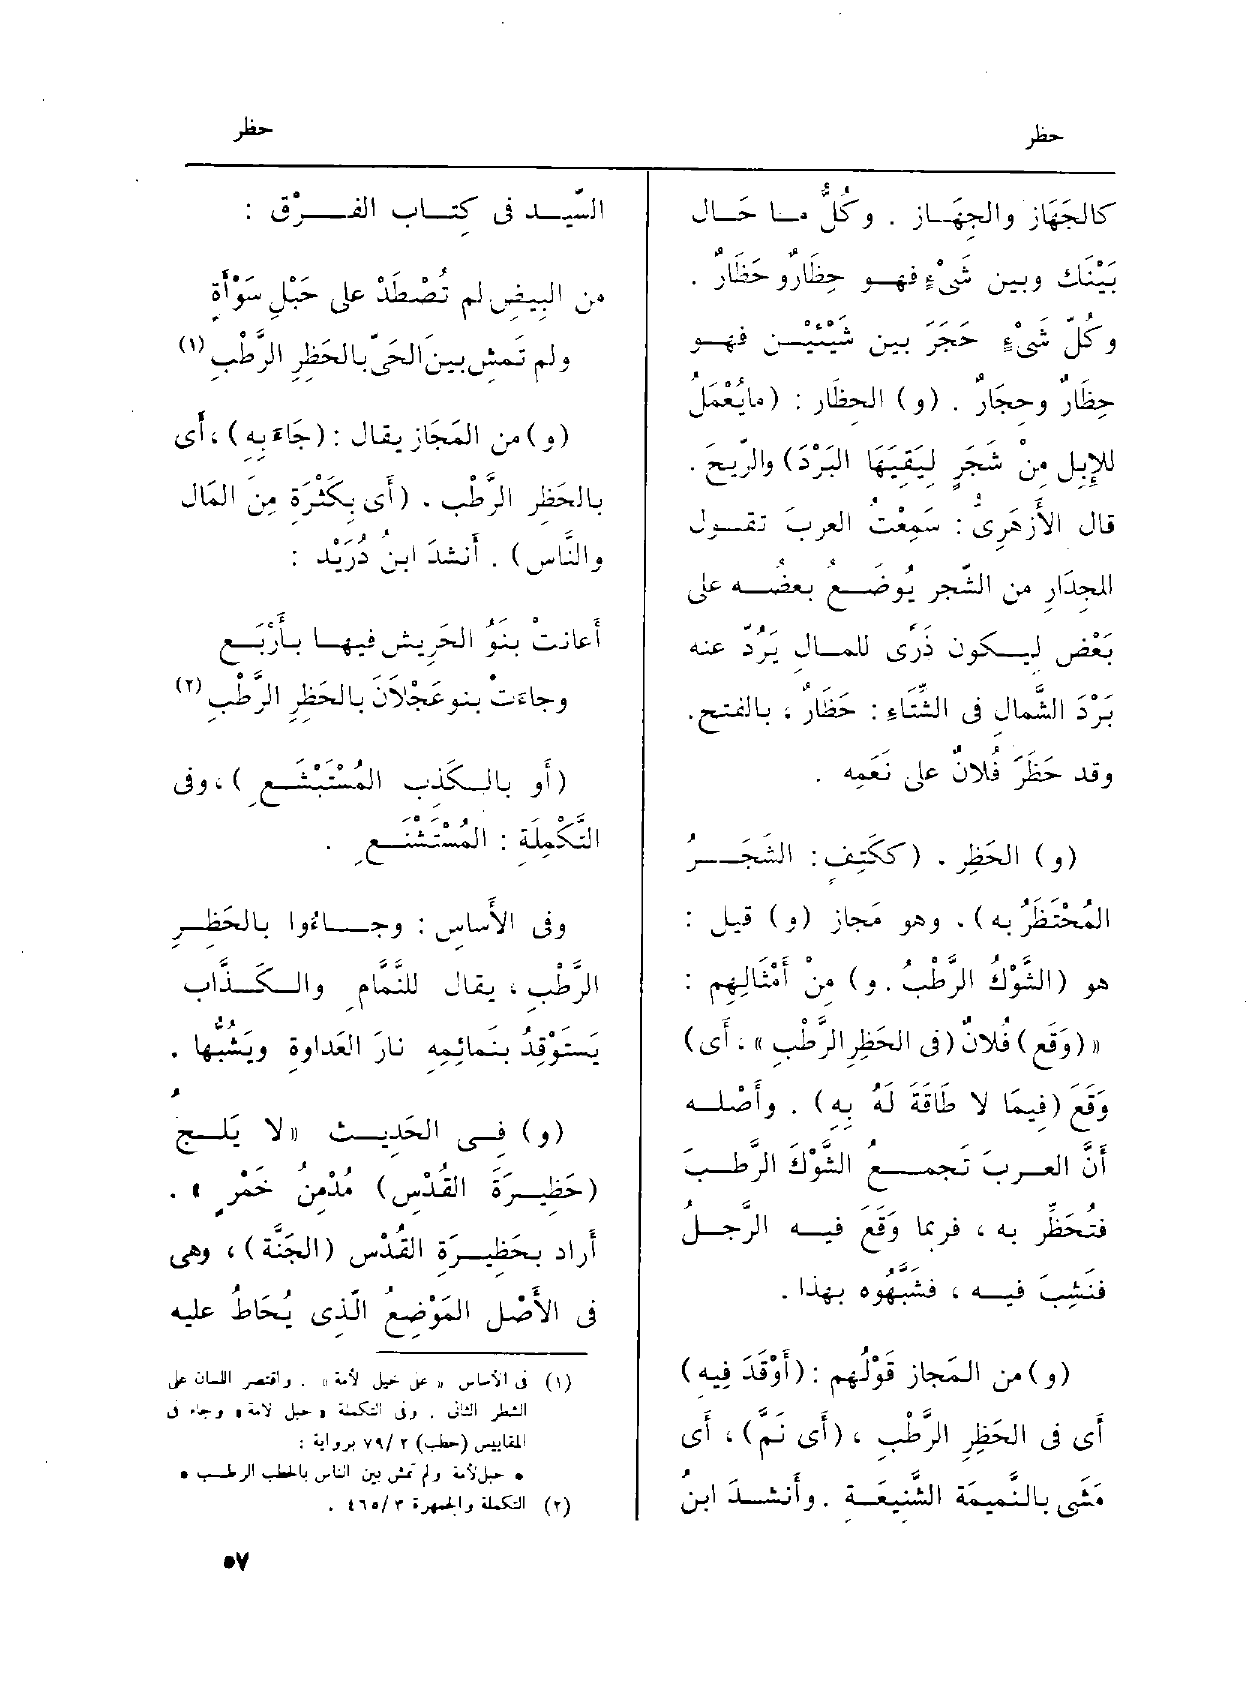 حظر
حظر
كالجَهَاز والجِهَاز . وكُلُّ ما حَال
بَيْنَك وبين شَىْءٍ فهو حِظَارٌ و حَظَارٌ .
وكُلّ شَىْءٍ حَجَرَ بين شَيْئَيْن فهو
حِظَارٌ وحِجَارٌ . (و) الحِظَار : (مايُعْمَلُ
للإِبِل مِنْ شَجَرٍ لِيَقِيَهَا البَرْدَ) والرِّيحَ .
قال الأَزهَرِىُّ : سَمِعْتُ العربَ تقول
للجِدَارِ من الشَّجر يُوضَعُ بعضُه على
بَعْض ليكون ذَرًى للمالِ يَرُدّ عنه
بَرْدَ الشَّمالِ فى الشِّتَاءِ : حَظَارٌ ، بالفتح.
وقد حَظَرَ فُلانٌ على نَعَمِه .
(و) الحَظِر . (ككَتِفٍ : الشَّجَرُ
المُحْتَظَرُ به) . وهو مَجاز (و) قيل :
هو (الشَّوْكُ الرَّطْبُ . و) مِنْ أَمْثَالِهم :
« (وَقَع) فُلانٌ (فى الحَظِر الرَّطْبِ » ، أَى)
وَقَعَ (فِيمَا لا طَاقَةَ لَهُ بِه) . وأَصْله
أَنَّ العربَ تَجمعُ الشَّوْكَ الرَّطبَ
فتُحَظِّر به ، فربما وَقَعَ فيه الرَّجلُ
فنَشِبَ فيه ، فشَبَّهُوه بهذا .
(و) من المَجاز قَوْلُهم : (أَوْقَدَ فِيه)
أَى فى الحَظِرِ الرَّطْبِ ، (أَى نَمَّ) ، أَى
مَشَى بالنَّميمَة الشَّنِيعَة . وأَنشدَ ابنُ
السّيد فى كِتاب الفَرْق :
من البِيضِ لم تُصْطَدْ على حَبْلِ سَوْأَةٍ
ولم تَمشِ بينَ الحَىِّ بالحَظِرِ الرَّطْبِ (١)
(و) من المَجَاز يقال : (جَاءَ بِه) ، أَى
بالحَظِرِ الرَّطْب . (أَى بِكَثْرَةٍ مِنَ المَال
والنَّاسِ) . أَنشدَ ابنُ دُرَيْد :
أَعانتْ بنَوُ الحَرِيشِ فيها بأَرْبَعٍ
وجاءَتْ بنو عَجْلَانَ بالحَظِرِ الرَّطْبِ (٢)
(أَو بالكَذِب المُسْتَبْشَعِ) ، وفى
التَّكْمِلَة : المُسْتَشْنَعِ .
وفى الأَساسِ : وجاءُوا بالحَظِرِ
الرَّطْبِ ، يقال للنَّمَّامِ والكَذَّاب
يَستَوْقِدُ بنَمائِمِه نارَ العَداوة ويَشُبُّها .
(و) فى الحَدِيث « لا يَلج
(حَظِيرَةَ القُدْسِ) مُدْمِنُ خَمْرٍ » .
أَراد بحَظِيرَة القُدْس (الجَنَّة) ، وهى
فى الأَصْل المَوْضِعُ الّذى يُحَاطُ عليه
(١) فى الأساس « على خيل لأمة » . واقتصر اللسان على
الشطر الثانى . وفى التكملة « حبل لامة » وجاء فى
المقاييس (حطب) ٧٩/٢ برواية :
• حبل لأمة ولم تمش بين الناس بالحطب الرطب •
(٢) التكملة والجمهرة ٤٦٥/٣ .
٥٧